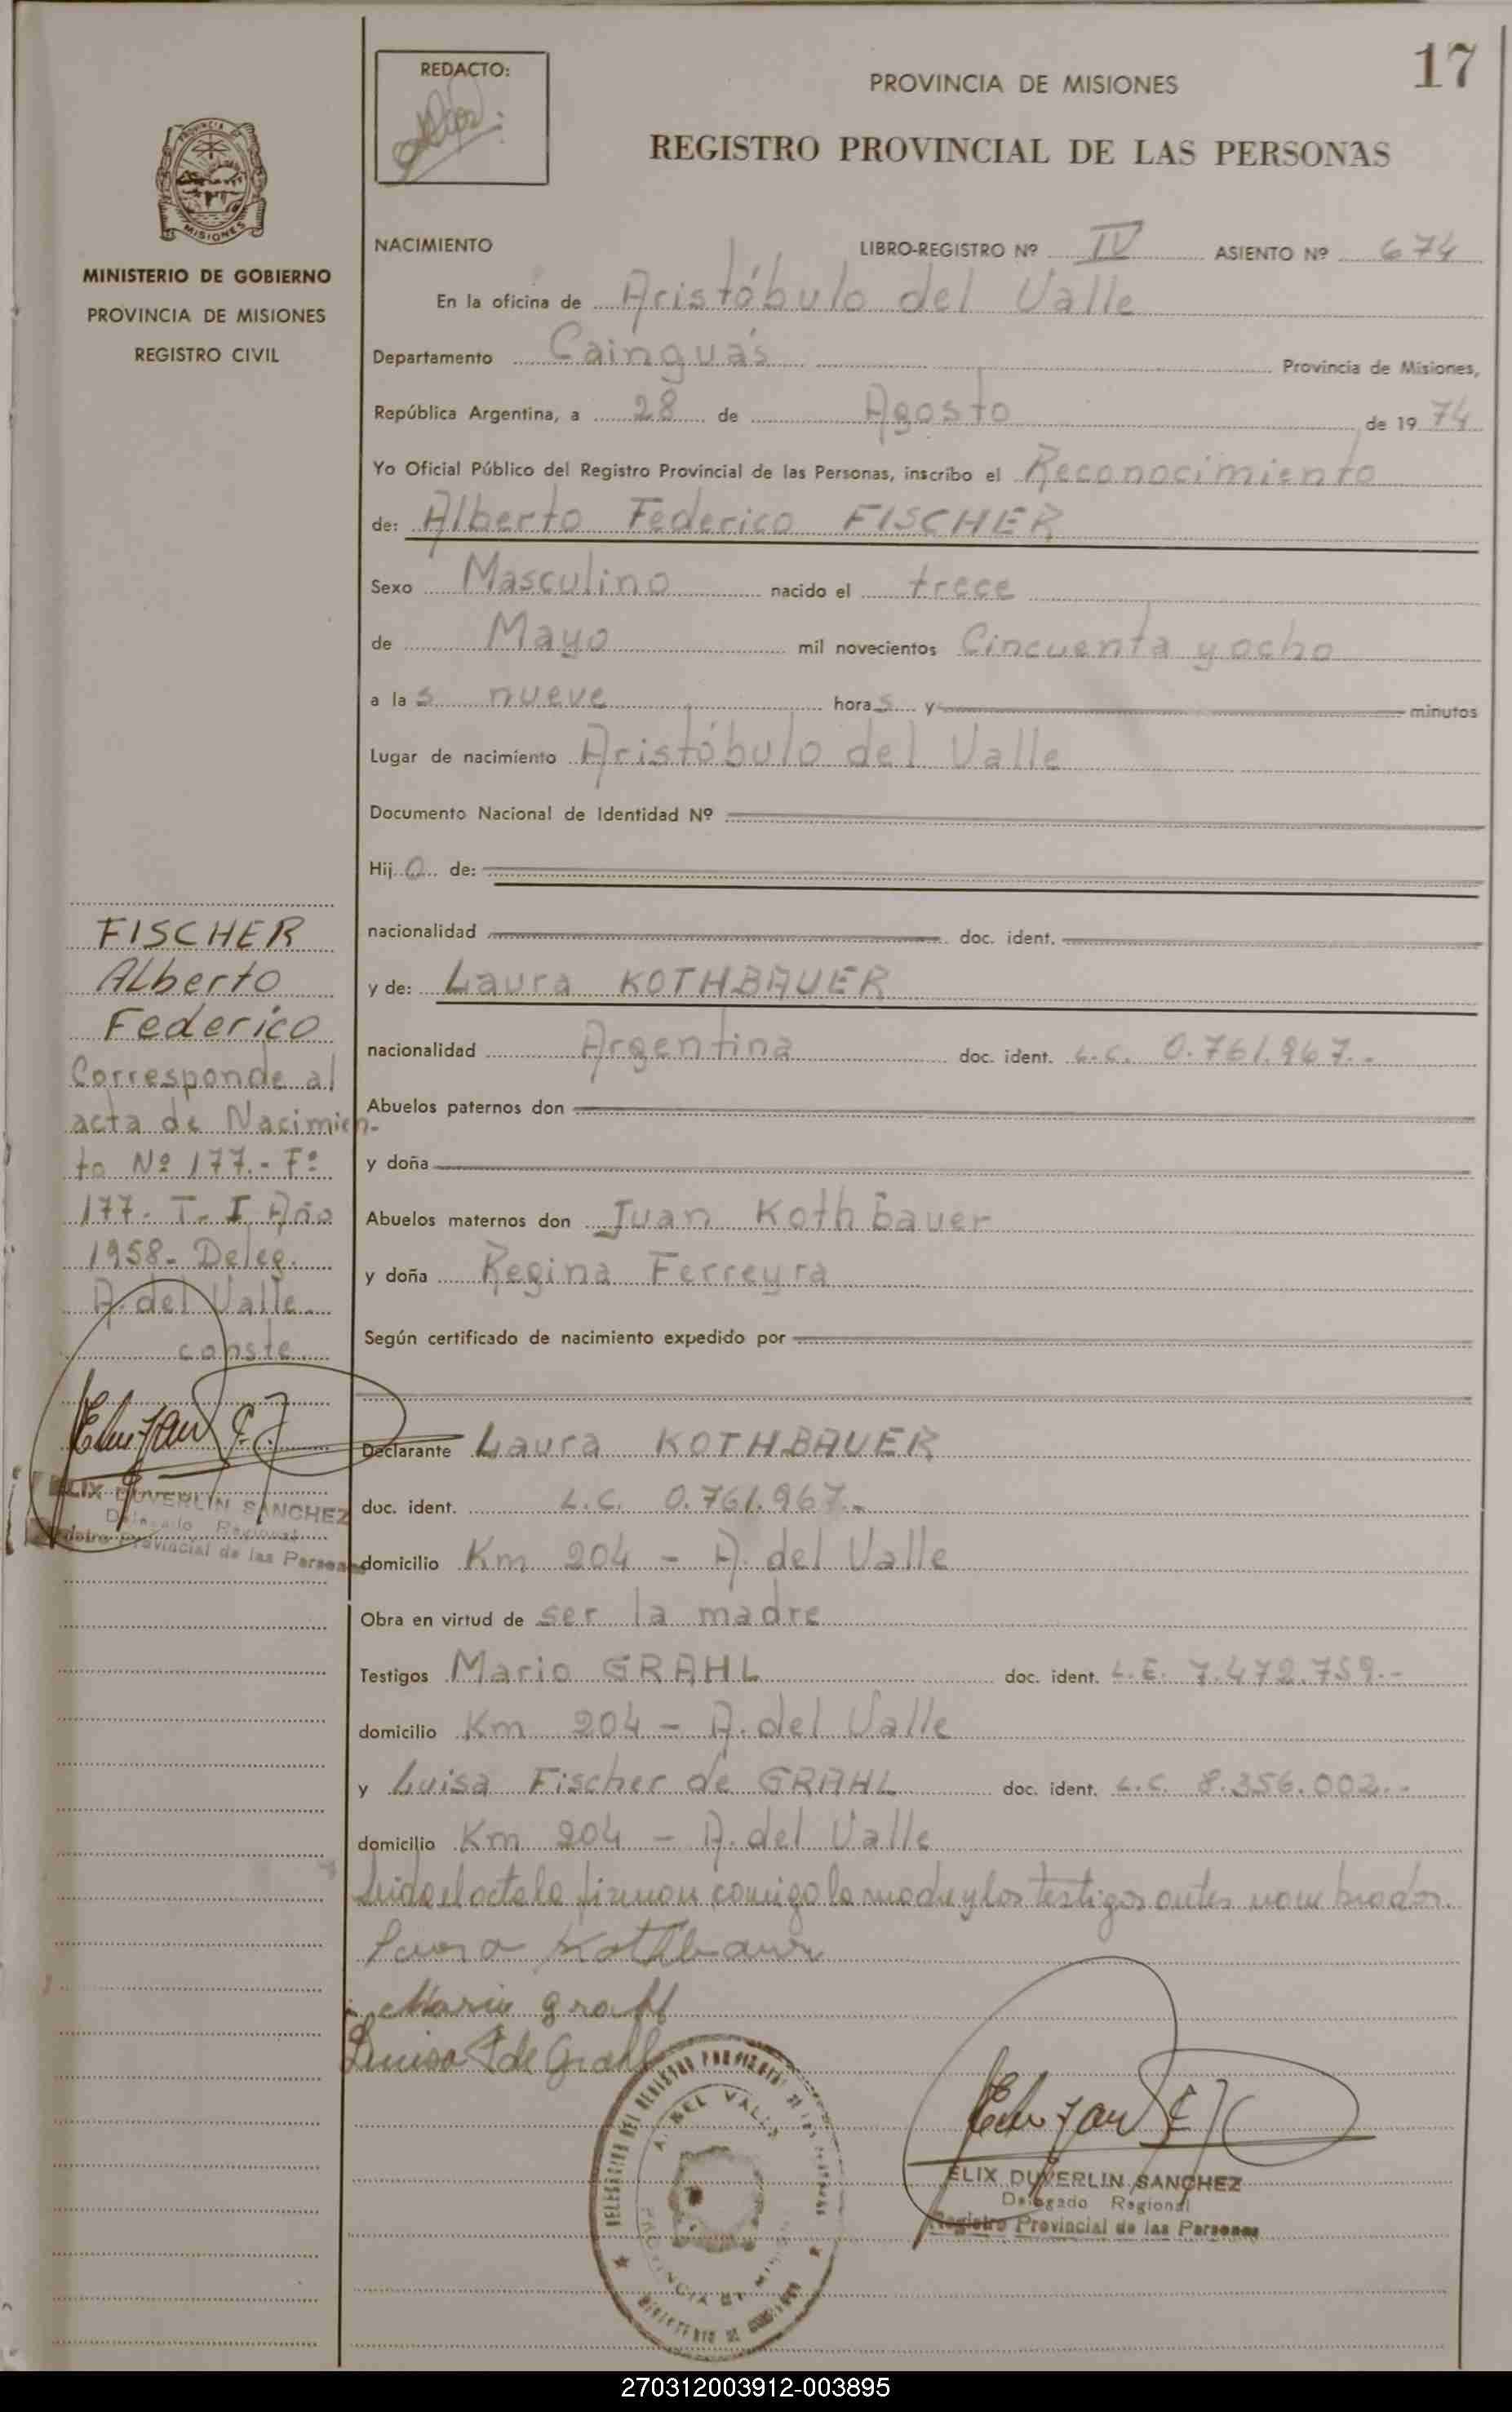 17
REDACTO:
PROVINCIA DE MISIONES
REGISTRO PROVINCIAL DE LAS PERSONAS
MISIONES
MINISTERIO DE GOBIERNO
PROVINCIA DE MISIONES
REGISTRO CIVIL
NACIMIENTO LIBRO-REGISTRO Nº IV ASIENTO Nº 674
En la oficina de Aristóbulo del Valle
Departamento Cainguás Provincia de Misiones,
República Argentina, a 28 de Agosto de 1974
Yo Oficial Público del Registro Provincial de las Personas, inscribo el Reconocimiento
de: Alberto Federico FISCHER
Sexo Masculino nacido el trece
de Mayo mil novecientos Cincuenta y ocho
a las nueve horas y minutos
Lugar de nacimiento Aristóbulo del Valle
Documento Nacional de Identidad Nº
Hijo de:
nacionalidad doc. ident.
y de: Laura KOTHBAUER
nacionalidad Argentina doc. ident. L.C. 0.761.967.-
Abuelos paternos don
y doña
Abuelos maternos don Juan Kothbauer
y doña Regina Ferreyra
Según certificado de nacimiento expedido por
Declarante Laura KOTHBAUER
doc. ident. L.C. 0.761.967.-
domicilio Km 204 - A. del Valle
Obra en virtud de ser la madre
Testigos Mario GRAHL doc. ident. L.E. 7.472.759.-
domicilio Km 204 - A. del Valle
y Luisa Fischer de GRAHL doc. ident. L.C. 8.356.002.-
domicilio Km 204 - A. del Valle
Leida el acta la firman comigo la madre y los testigos antes nombrados.
Laura Kothbaur
Mario grahl
Luisa F de Grahl
FISCHER
Alberto
Federico
Corresponde al
acta de Nacimien-
to Nº 177.- Fº
177- T- I Año
1958- Deleg.
A. del Valle
conste
ELIX DUVERLIN SANCHEZ
Delegado Regional
Registro Provincial de las Personas
A. DEL VALLE
ELIX DUVERLIN SANCHEZ
Delegado Regional
Registro Provincial de las Personas
270312003912-003895